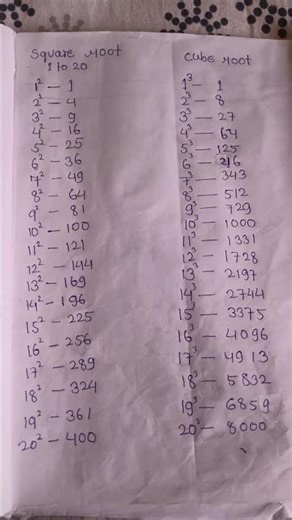 Square root
1 to 20
1² — 1
2² — 4
3² — 9
4² — 16
5² — 25
6² — 36
7² — 49
8² — 64
9² — 81
10² — 100
11² — 121
12² — 144
13² — 169
14² — 196
15² — 225
16² — 256
17² — 289
18² — 324
19² — 361
20² — 400
Cube root
1³ — 1
2³ — 8
3³ — 27
4³ — 64
5³ — 125
6³ — 216
7³ — 343
8³ — 512
9³ — 729
10³ — 1000
11³ — 1331
12³ — 1728
13³ — 2197
14³ — 2744
15³ — 3375
16³ — 4096
17³ — 4913
18³ — 5832
19³ — 6859
20³ — 8000